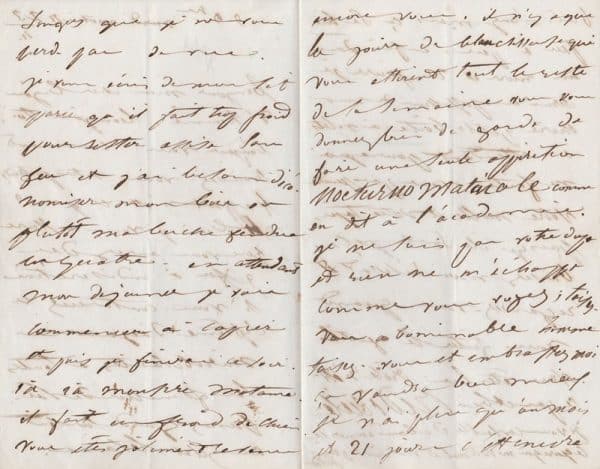 que je ne vous
perd pas de vue.
je vous écris de mon lit
parce qu'il fait trop froid
pour rester assise sans
feu et j'ai besoin d'éco
nomiser mon bois ou
plutôt ma buche fendue
en quatre. en attendant
mon déjeuner je vais
commencer à copier
et puis je finirai ce soir.
il fait un froid de chien
vous êtes joliment
encore vous. il n'y a que
les jours de blanchissage qui
vous attirent tout le reste
de la semaine vous vous
donnez bien de garde de
faire une seule apparition
nocturno matinale comme
on dit à l'académie.
je ne suis pas votre dupe
et rien ne m'échappe
comme vous voyez; taisez
vous abominable homme
taisez-vous et embrassez moi
ça vaudra bien mieux.
je n'ai plus qu'un mois
et 21 jours à attendre